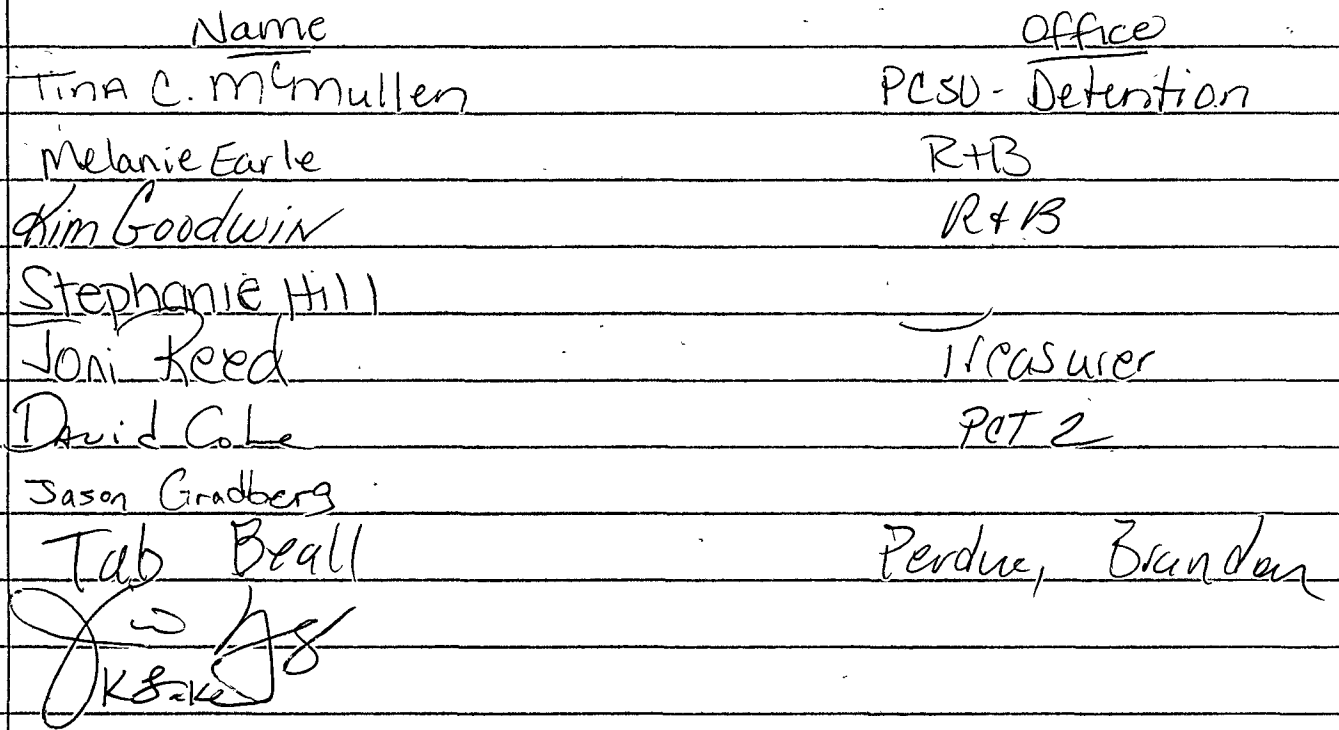 Name Office
Tina C. McMullen PCSO - Detention
Melanie Earle R+B
Kim Goodwin R+B
Stephanie Hill
Joni Reed Treasurer
David Cole PCT 2
Jason Gradberg
Tab Beall Perdue, Brandon